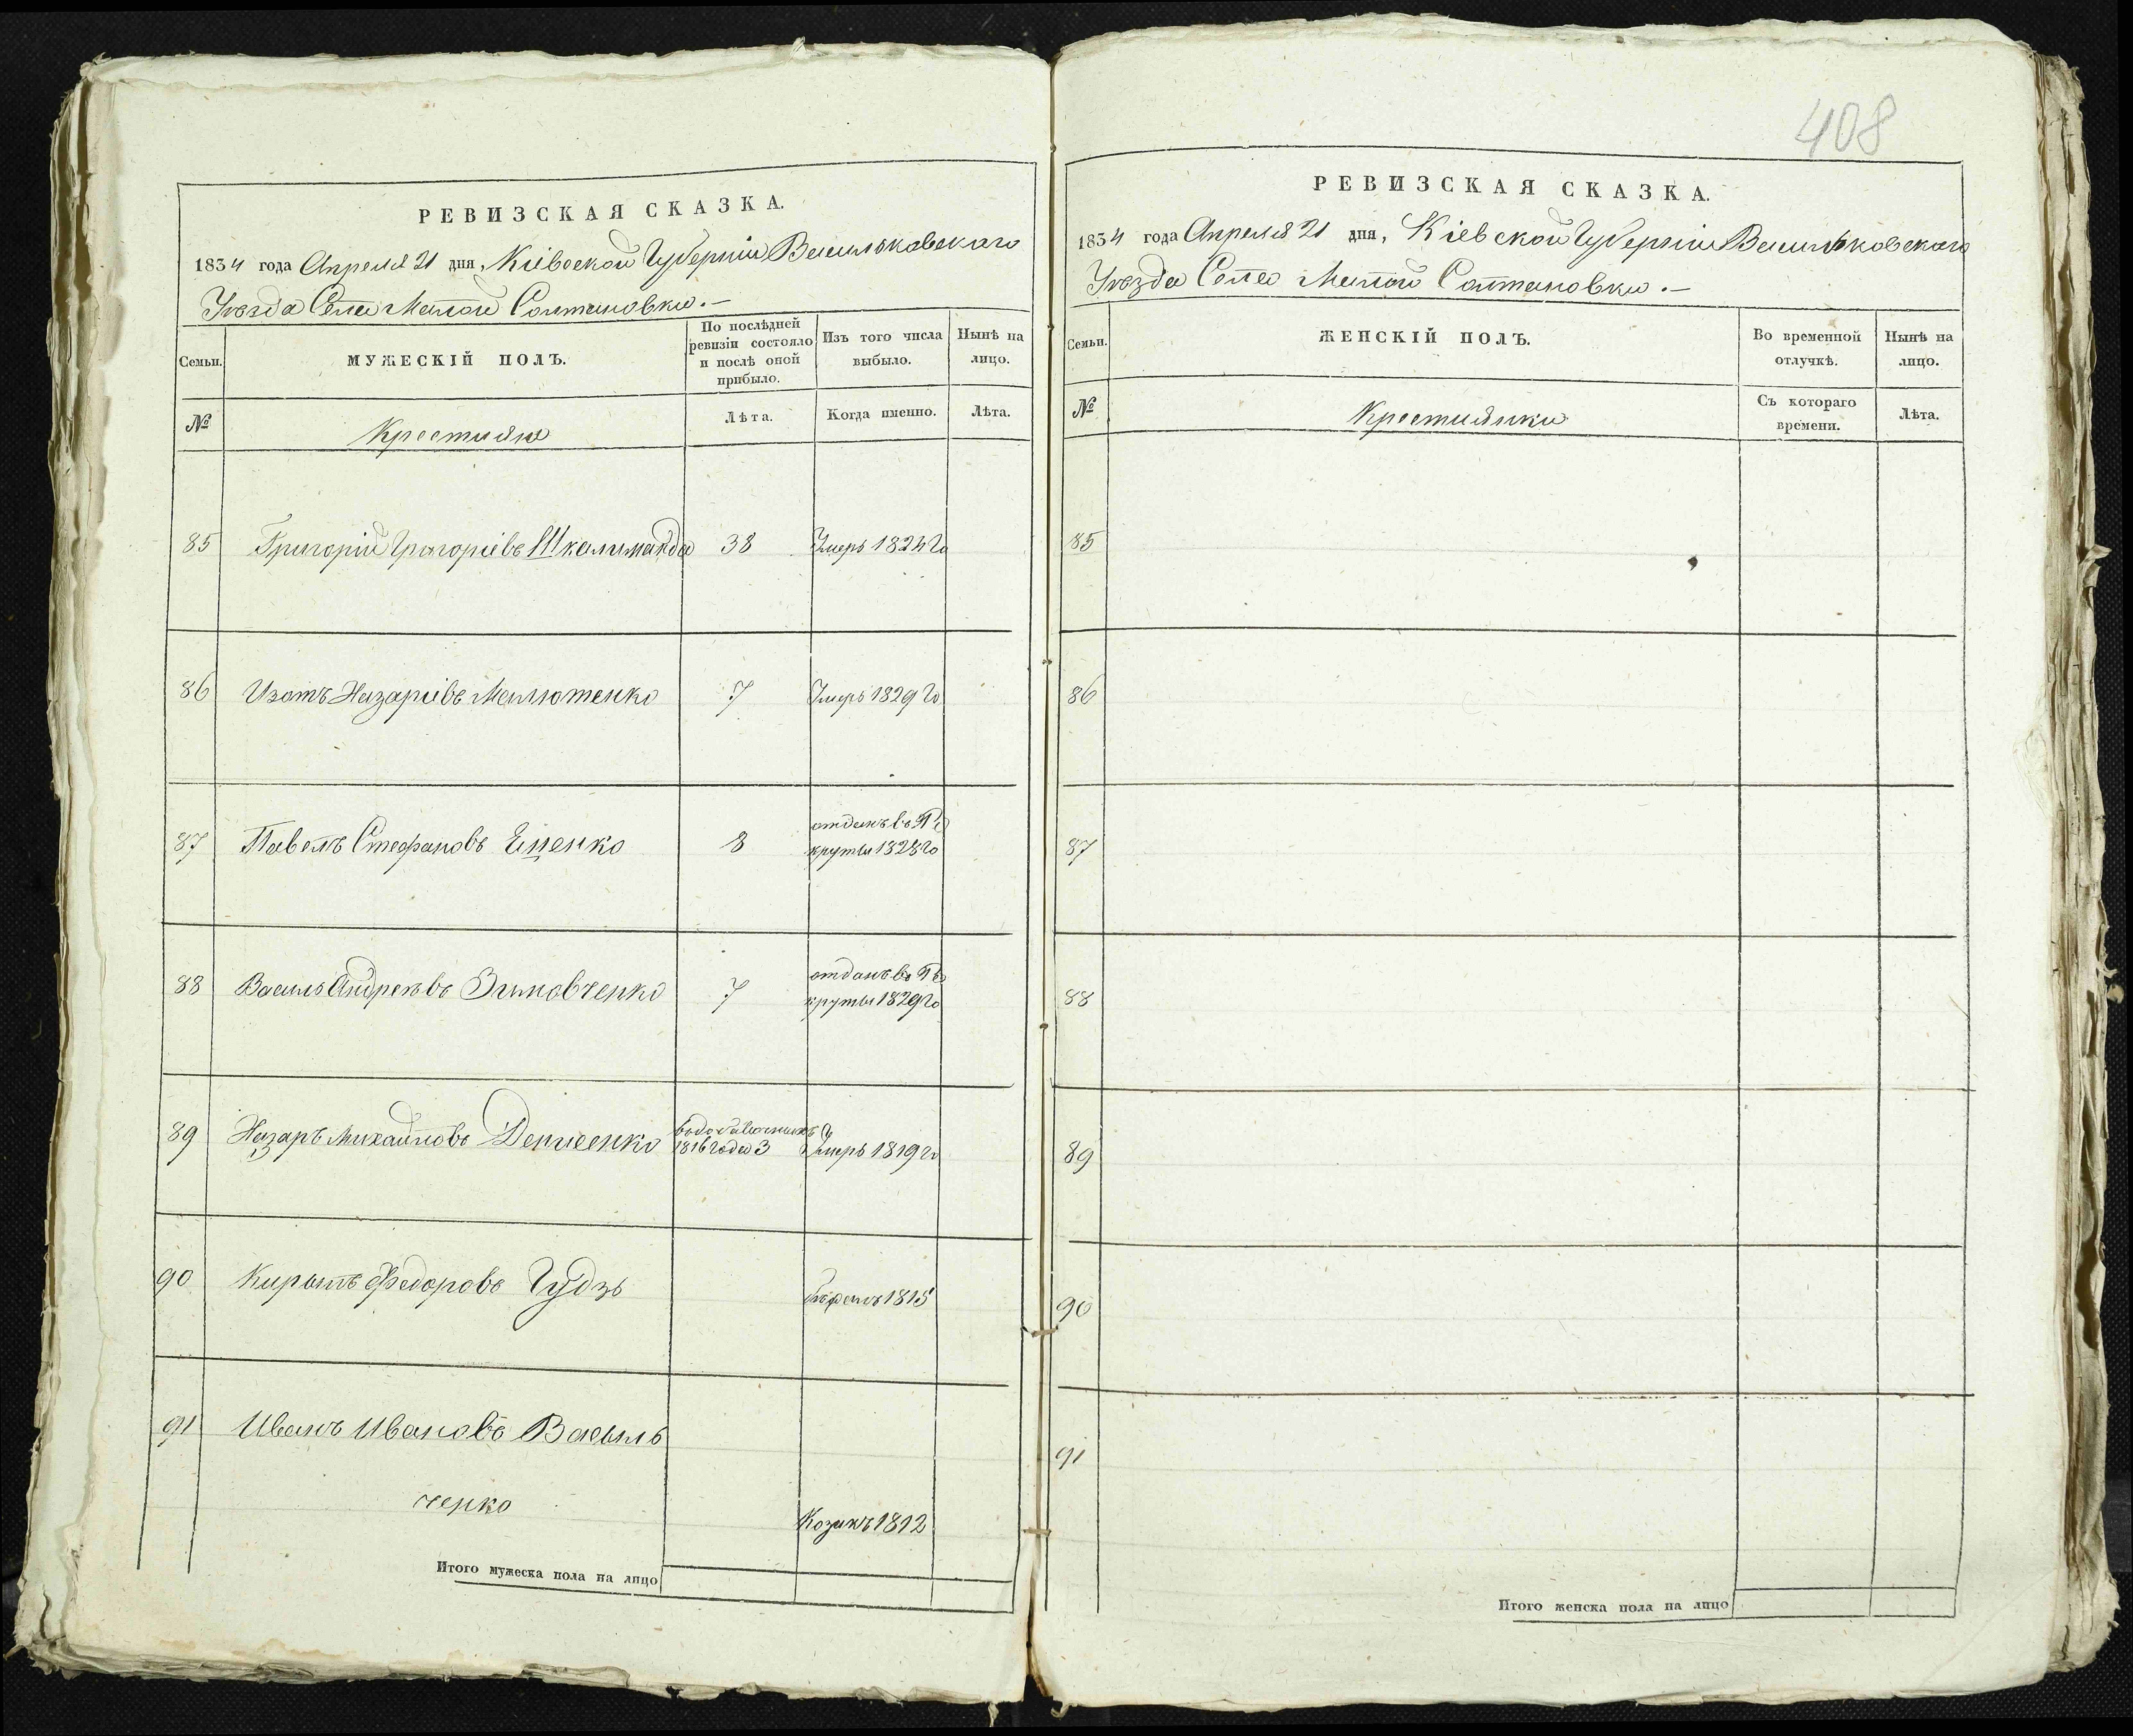 РЕВИЗСКАЯ СКАЗКА.
1834 года Апреля 21 дня, Кіевской Губерніи Васильковского
Уѣзда Села Малой Солтановки.—
Семьи.
МУЖЕСКІЙ ПОЛЪ.
По послѣдней
ревизіи состояло
и послѣ оной
прибыло.
Изъ того числа
выбыло.
Нынѣ на
лицо.
№
Крестьяне
Лѣта.
Когда именно.
Лѣта.
85 Григорій Григоріевъ Шкалиманда 38 Умеръ 1824 Го
86 Изотъ Назаріевъ Малютенко 7 Умеръ 1829 Го
87 Павелъ Стефановъ Еценко 8 отданъ въ Ре
круты 1828 Го
88 Василь Андреевъ Зиновченко 7 отданъ въ Ре
круты 1829 Го
89 Назаръ Михайловъ Денисенко
1816 Года 3 Умеръ 1819 Го
90 Кирилъ Федоровъ Гудзь
1815
91 Иванъ Ивановъ Василь
ченко
Козакъ 1812
Итого мужеска пола на лицо
408
РЕВИЗСКАЯ СКАЗКА.
1834 года Апреля 21 дня, Кіевской Губерніи Васильковского
Уѣзда Села Малой Солтановки.—
Семьи.
ЖЕНСКІЙ ПОЛЪ.
Во временной
отлучкѣ.
Нынѣ на
лицо.
№
Крестьянки
Съ котораго
времени.
Лѣта.
85
86
87
88
89
90
91
Итого женска пола на лицо